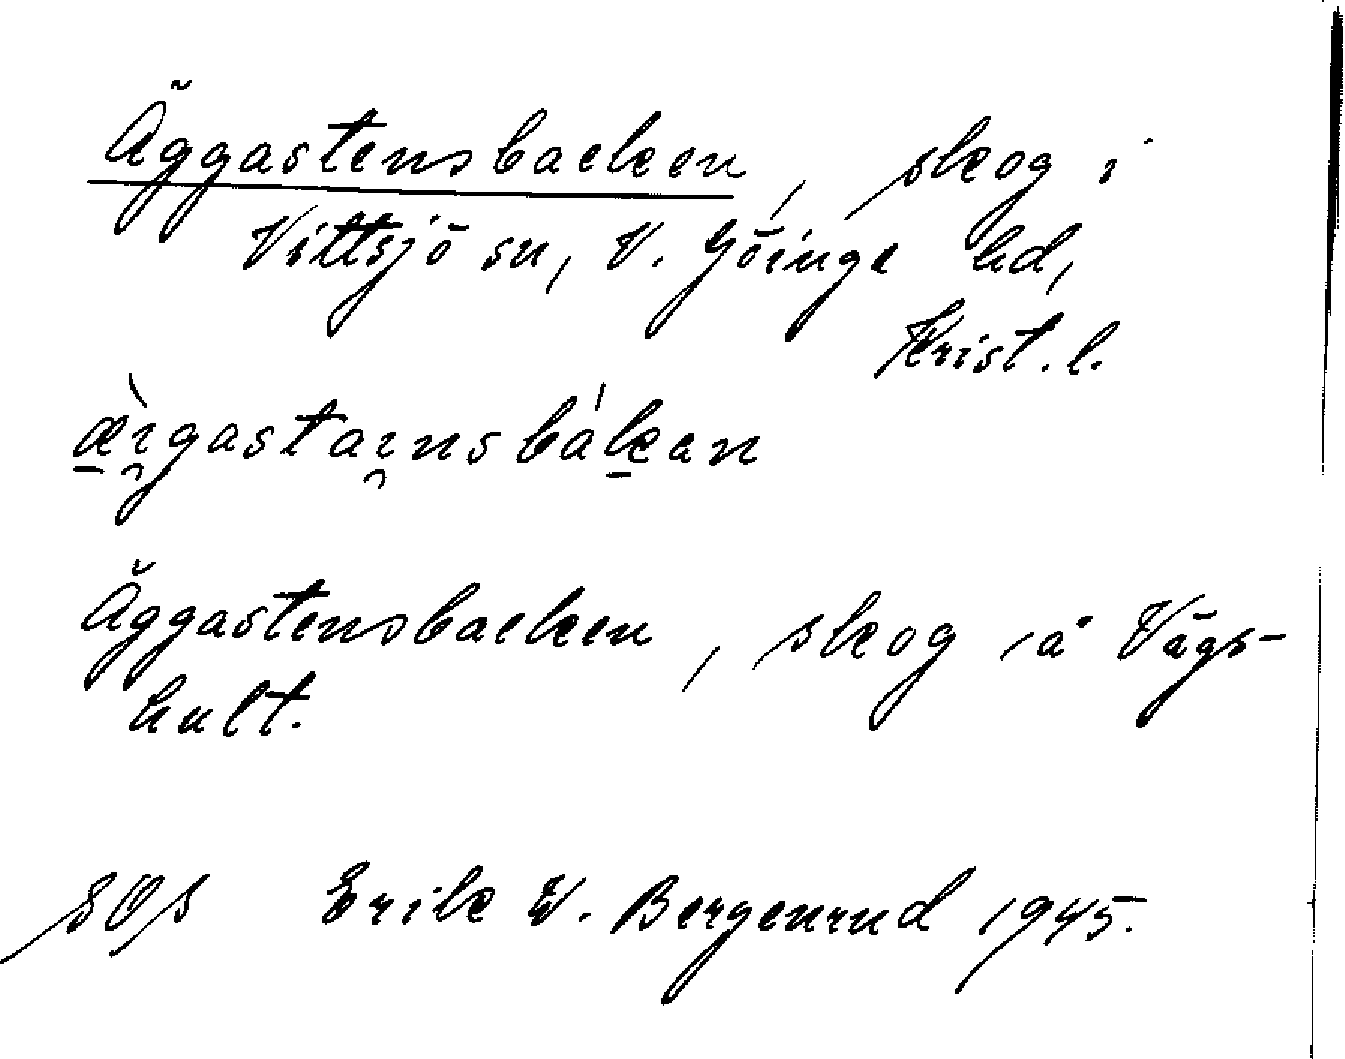 Äggastensbacken, skog i
Vittsjö sn, V. Göinge hd,
Krist. l.
æ̀i̯gastai̯nsbákan
Äggastensbacken, skog å Vägs-
hult.
SOS Erik W. Bergenrud 1945.